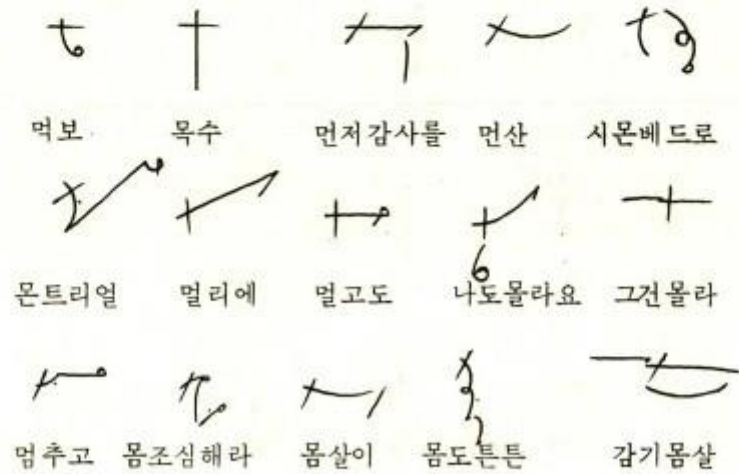 먹보 목수 먼저감사를 먼산 시몬베드로
몬트리얼 멀리에 멀고도 나도몰라요 그건몰라
멈추고 몸조심해라 몸살이 몸도튼튼 감기몸살